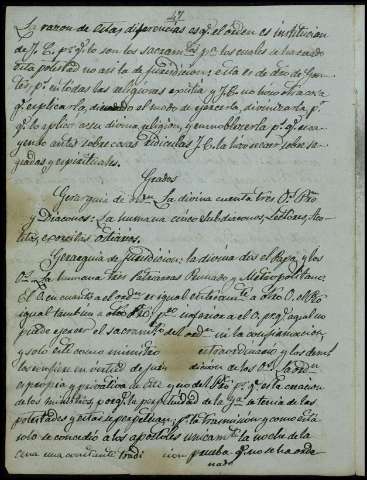 47
La razon de estas diferencias es q.e el orden es institucion
de J. C. p.s q.e lo son los sacram.tos p.a los cuales se ha dado
esta potestad no asi la de jurisdiccion; esta es de dro de Gen-
tes, p.s en todas las religiones existia y J. C. no hizo otra cosa
q.e esplicarla, dictando el modo de ejercerla, divinizarla p.r
q.e la aplicó a su divina religion, y ennoblecerla p.r q.e reca-
yendo antes sobre cosas ridiculas J. C. la hizo recaer sobre sa-
gradas y espirituales.
Grados
Gerarquia de Orden. La divina cuenta tres O. Pbro
y Diaconos: La humana cinco Subdiaconos, Lectores, Aco-
litos, exorcistas Ostiarios.
Gerarquia de jurisdiccion: la divina dos el Papa y los
O.s La humana tres Patriarcas Primado y Metropolitano.
El O. en cuanto a el orden es igual enteram.te a otro O. el Pbro
igual tambien a otro Pbro, pero inferior a el O. p.r q.e aquel no
puede ejercer el sacram.to del orden ni la confirmacion,
y solo este como ministro extraordinario y los demas
los confiere en virtud de juris diccion de los O.s La orden
es propia y privativa de este y no del Pbro p.r q.e en la creacion
de los ministros, por q.e la perpetuidad de la Yg.a
potestades y estas se perpetuan p.r la trasmision y como esta
solo se concedio a los apostoles unicam.te la noche de la
cena una constante tradi cion prueba q.e no se ha orde
nado